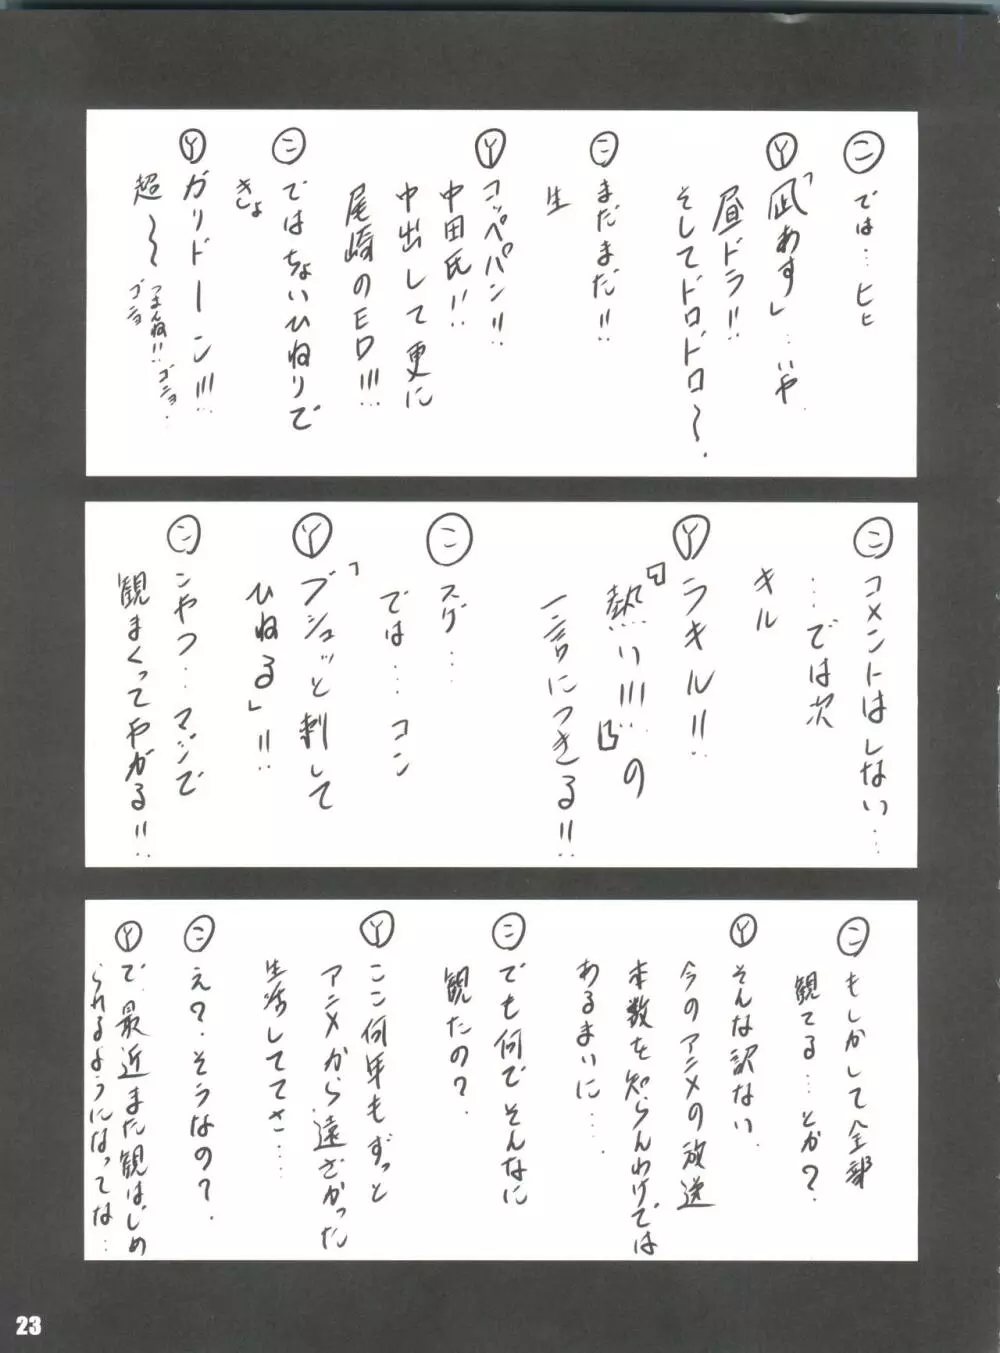 ㊁ では…ヒヒ
Ⓨ「凪あす」…いや
昼ドラ!!
そしてドロドロ〜.
㊁ まだまだ!!
生
Ⓨ コッペパン!!
中田氏!!
中出して更に
尾崎のED!!!
㊁ ではちょいひねりで
きしょ
Ⓨ ガリドーン!!!
超〜〜つまんね!!ゴニョ…
ゴニョ
㊁ コメントはしない…
…では次
キル
Ⓨ ラキル!!
『熱い!!!』の
一言につきる!!
㊁ スゲ…
では…コン
Ⓨ「ブシュッと刺して
ひねる」!!
㊁ こやつ…マジで
観まくってやがる!!
㊁ もしかして全部
観てる…とか?
Ⓨ そんな訳ない.
今のアニメの放送
本数を知らんわけでは
あるまいに…
㊁ でも何でそんなに
観たの?
Ⓨ ここ何年もずっと
アニメから遠ざかった
生活しててさ…
㊁ え?そうなの?
Ⓨ で、最近また観はじめ
られるようになってな…
23